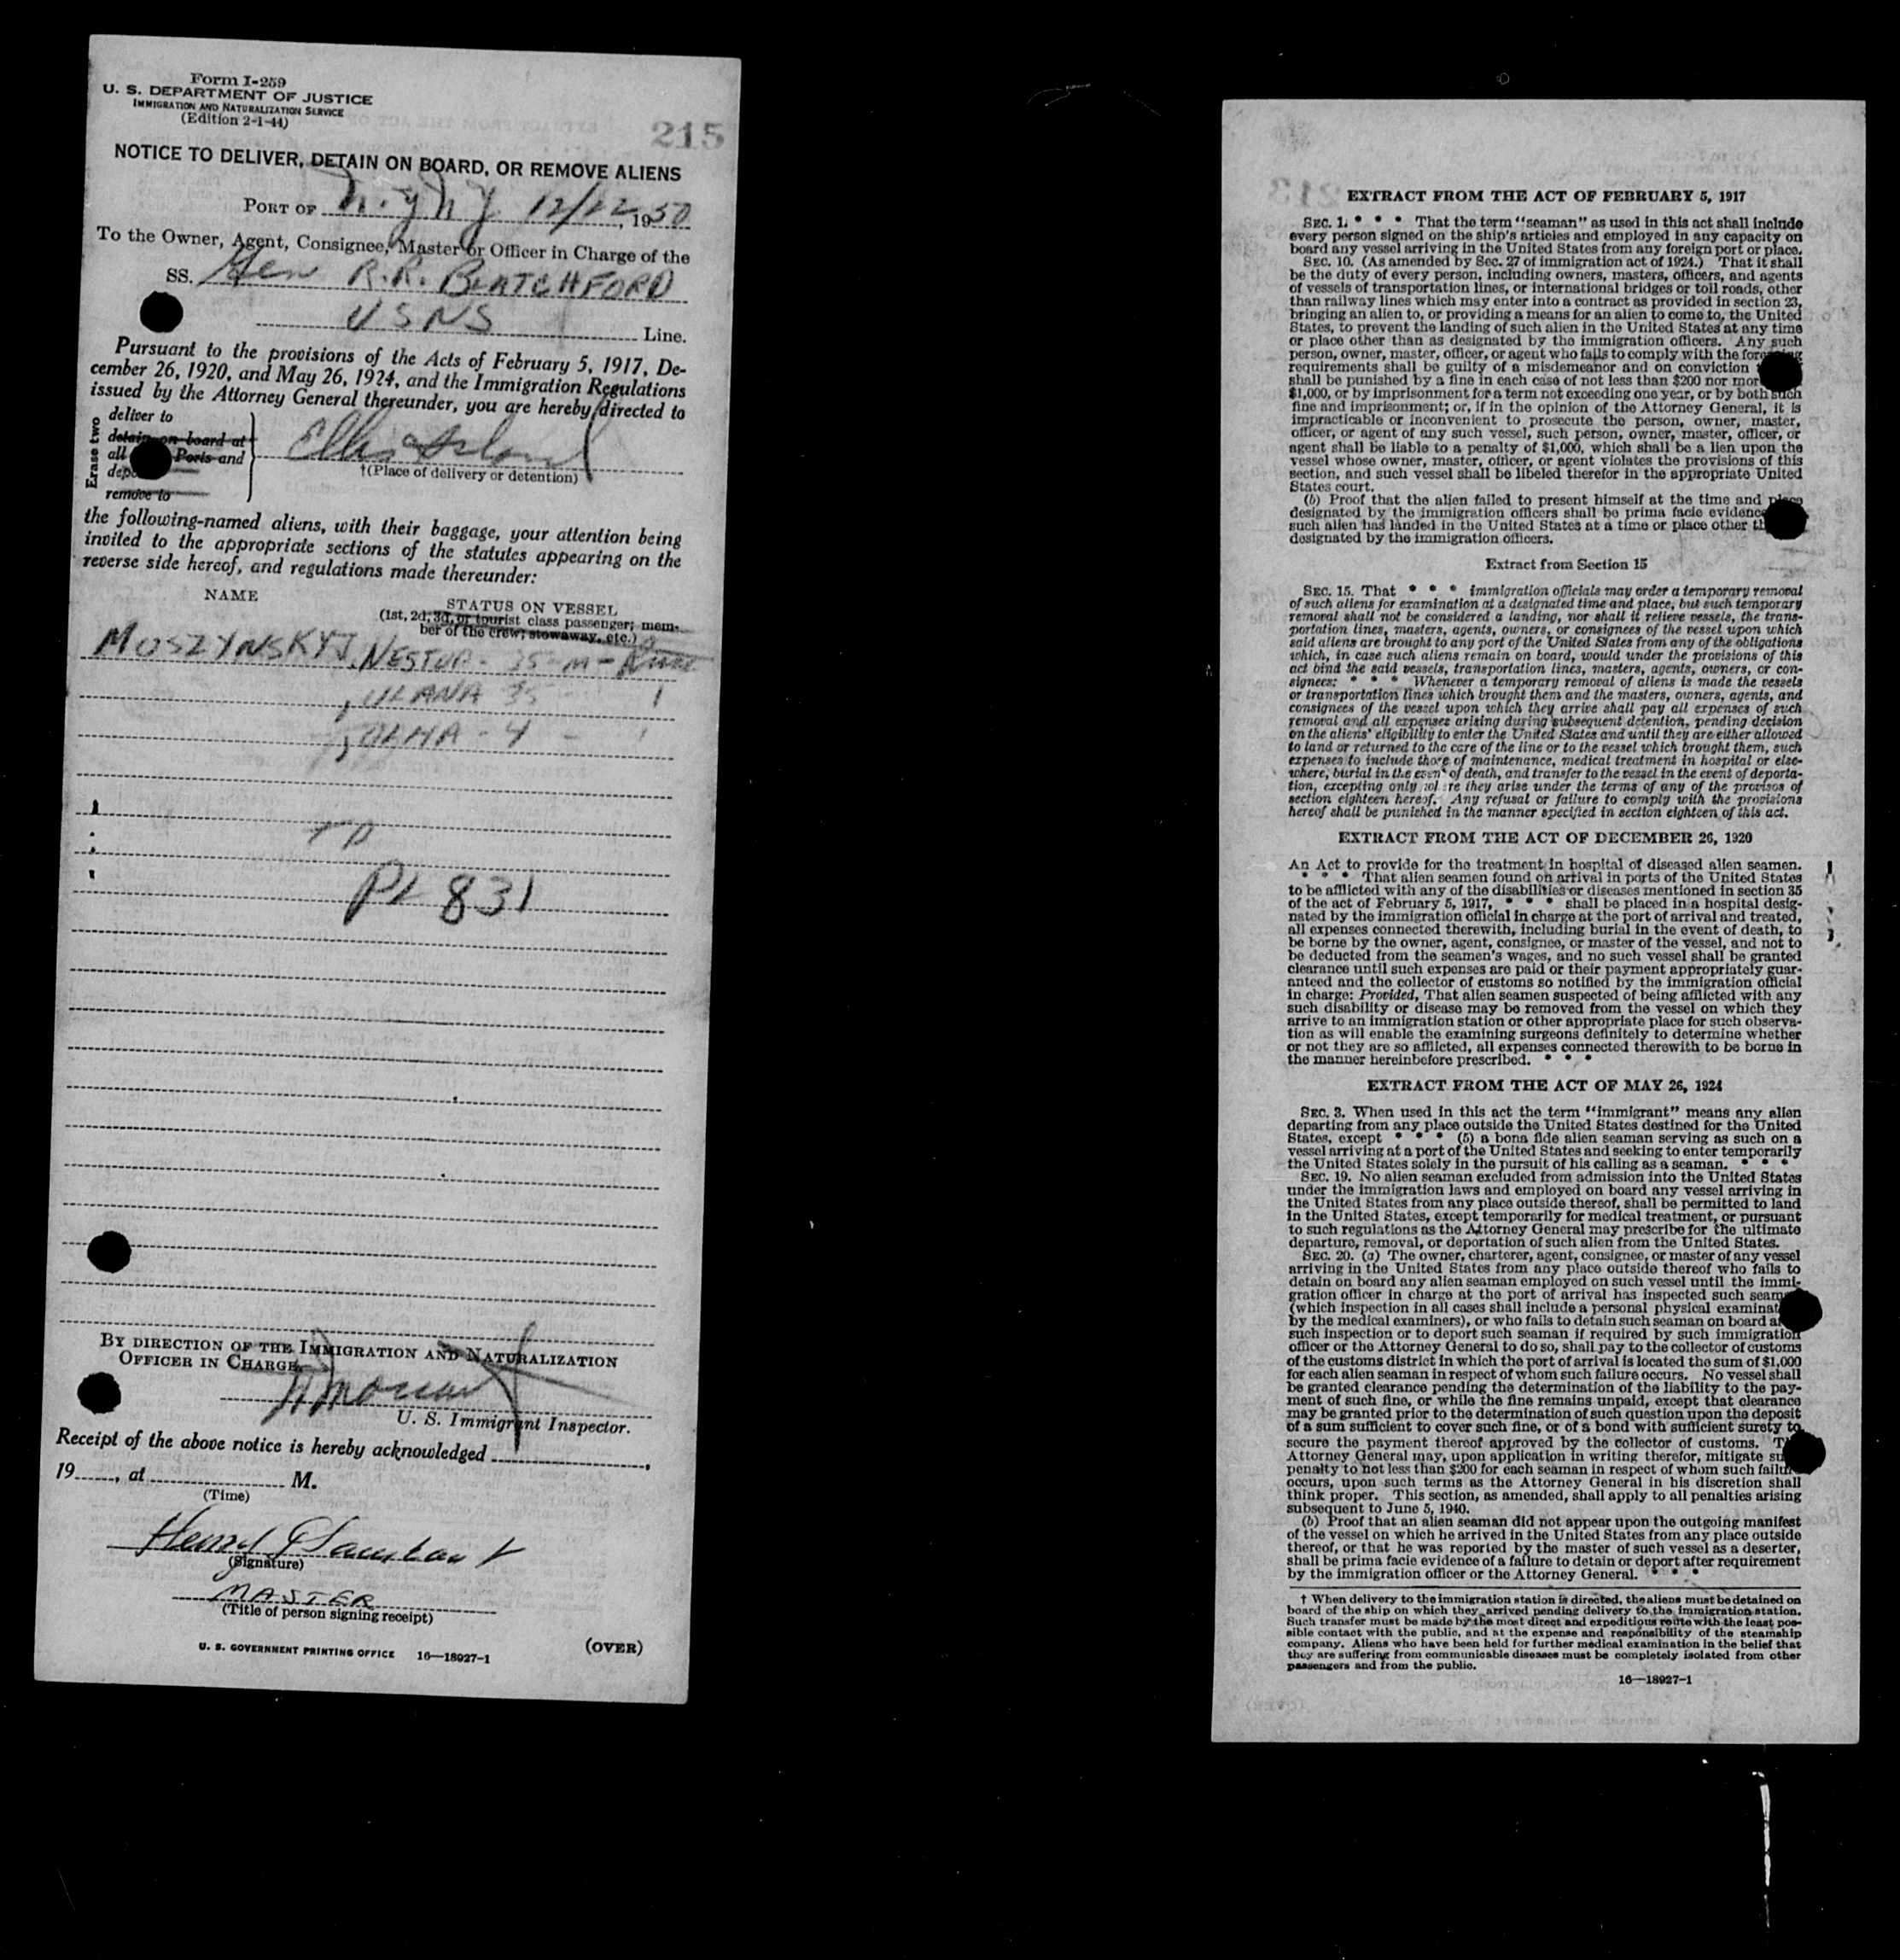 Form I-259
U. S. DEPARTMENT OF JUSTICE
IMMIGRATION AND NATURALIZATION SERVICE
(Edition 2-1-44)
215
NOTICE TO DELIVER, DETAIN ON BOARD, OR REMOVE ALIENS
PORT OF N.Y N Y 12/22, 1950
To the Owner, Agent, Consignee, Master or Officer in Charge of the
SS. Gen R.R. BLATCHFORD
USNS Line.
Pursuant to the provisions of the Acts of February 5, 1917, De-
cember 26, 1920, and May 26, 1924, and the Immigration Regulations
issued by the Attorney General thereunder, you are hereby directed to
Erase two
deliver to
detain on board at
all Ports and
remove to
Ellis Island
†(Place of delivery or detention)
the following-named aliens, with their baggage, your attention being
invited to the appropriate sections of the statutes appearing on the
reverse side hereof, and regulations made thereunder:
NAME
STATUS ON VESSEL
(1st, 2d, 3d, or tourist class passenger; mem-
ber of the crew; stowaway, etc.)
MOSZYNSKYJ, NESTOR - 35-m-
, ULANA 35
, OLHA - 4 -
TD
PL 831
BY DIRECTION OF THE IMMIGRATION AND NATURALIZATION
OFFICER IN CHARGE.
U. S. Immigrant Inspector.
Receipt of the above notice is hereby acknowledged
19, at M.
(Time)
Henry
(Signature)
MASTER
(Title of person signing receipt)
U. S. GOVERNMENT PRINTING OFFICE 16—18927-1
(OVER)
EXTRACT FROM THE ACT OF FEBRUARY 5, 1917
SEC. 1. * * * That the term "seaman" as used in this act shall include
every person signed on the ship's articles and employed in any capacity on
board any vessel arriving in the United States from any foreign port or place.
SEC. 10. (As amended by Sec. 27 of immigration act of 1924.) That it shall
be the duty of every person, including owners, masters, officers, and agents
of vessels of transportation lines, or international bridges or toll roads, other
than railway lines which may enter into a contract as provided in section 23,
bringing an alien to, or providing a means for an alien to come to, the United
States, to prevent the landing of such alien in the United States at any time
or place other than as designated by the immigration officers. Any such
person, owner, master, officer, or agent who fails to comply with the foregoing
requirements shall be guilty of a misdemeanor and on conviction
shall be punished by a fine in each case of not less than $200 nor mor
$1,000, or by imprisonment for a term not exceeding one year, or by both such
fine and imprisonment; or, if in the opinion of the Attorney General, it is
impracticable or inconvenient to prosecute the person, owner, master,
officer, or agent of any such vessel, such person, owner, master, officer, or
agent shall be liable to a penalty of $1,000, which shall be a lien upon the
vessel whose owner, master, officer, or agent violates the provisions of this
section, and such vessel shall be libeled therefor in the appropriate United
States court.
(b) Proof that the alien failed to present himself at the time and place
designated by the immigration officers shall be prima facie evidence
such alien has landed in the United States at a time or place other th
designated by the immigration officers.
Extract from Section 15
SEC. 15. That * * * immigration officials may order a temporary removal
of such aliens for examination at a designated time and place, but such temporary
removal shall not be considered a landing, nor shall it relieve vessels, the trans-
portation lines, masters, agents, owners, or consignees of the vessel upon which
said aliens are brought to any port of the United States from any of the obligations
which, in case such aliens remain on board, would under the provisions of this
act bind the said vessels, transportation lines, masters, agents, owners, or con-
signees: * * * Whenever a temporary removal of aliens is made the vessels
or transportation lines which brought them and the masters, owners, agents, and
consignees of the vessel upon which they arrive shall pay all expenses of such
removal and all expenses arising during subsequent detention, pending decision
on the aliens' eligibility to enter the United States and until they are either allowed
to land or returned to the care of the line or to the vessel which brought them, such
expenses to include those of maintenance, medical treatment in hospital or else-
where, burial in the event of death, and transfer to the vessel in the event of deporta-
tion, excepting only where they arise under the terms of any of the provisos of
section eighteen hereof. Any refusal or failure to comply with the provisions
hereof shall be punished in the manner specified in section eighteen of this act.
EXTRACT FROM THE ACT OF DECEMBER 26, 1920
An Act to provide for the treatment in hospital of diseased alien seamen.
* * * That alien seamen found on arrival in ports of the United States
to be afflicted with any of the disabilities or diseases mentioned in section 35
of the act of February 5, 1917, * * * shall be placed in a hospital desig-
nated by the immigration official in charge at the port of arrival and treated,
all expenses connected therewith, including burial in the event of death, to
be borne by the owner, agent, consignee, or master of the vessel, and not to
be deducted from the seamen's wages, and no such vessel shall be granted
clearance until such expenses are paid or their payment appropriately guar-
anteed and the collector of customs so notified by the immigration official
in charge: Provided, That alien seamen suspected of being afflicted with any
such disability or disease may be removed from the vessel on which they
arrive to an immigration station or other appropriate place for such observa-
tion as will enable the examining surgeons definitely to determine whether
or not they are so afflicted, all expenses connected therewith to be borne in
the manner hereinbefore prescribed. * * *
EXTRACT FROM THE ACT OF MAY 26, 1924
SEC. 3. When used in this act the term "immigrant" means any alien
departing from any place outside the United States destined for the United
States, except * * * (5) a bona fide alien seaman serving as such on a
vessel arriving at a port of the United States and seeking to enter temporarily
the United States solely in the pursuit of his calling as a seaman. * * *
SEC. 19. No alien seaman excluded from admission into the United States
under the immigration laws and employed on board any vessel arriving in
the United States from any place outside thereof, shall be permitted to land
in the United States, except temporarily for medical treatment, or pursuant
to such regulations as the Attorney General may prescribe for the ultimate
departure, removal, or deportation of such alien from the United States.
SEC. 20. (a) The owner, charterer, agent, consignee, or master of any vessel
arriving in the United States from any place outside thereof who fails to
detain on board any alien seaman employed on such vessel until the immi-
gration officer in charge at the port of arrival has inspected such seam
(which inspection in all cases shall include a personal physical examinat
by the medical examiners), or who fails to detain such seaman on board a
such inspection or to deport such seaman if required by such immigration
officer or the Attorney General to do so, shall pay to the collector of customs
of the customs district in which the port of arrival is located the sum of $1,000
for each alien seaman in respect of whom such failure occurs. No vessel shall
be granted clearance pending the determination of the liability to the pay-
ment of such fine, or while the fine remains unpaid, except that clearance
may be granted prior to the determination of such question upon the deposit
of a sum sufficient to cover such fine, or of a bond with sufficient surety to
secure the payment thereof approved by the collector of customs. T
Attorney General may, upon application in writing therefor, mitigate su
penalty to not less than $200 for each seaman in respect of whom such failure
occurs, upon such terms as the Attorney General in his discretion shall
think proper. This section, as amended, shall apply to all penalties arising
subsequent to June 5, 1940.
(b) Proof that an alien seaman did not appear upon the outgoing manifest
of the vessel on which he arrived in the United States from any place outside
thereof, or that he was reported by the master of such vessel as a deserter,
shall be prima facie evidence of a failure to detain or deport after requirement
by the immigration officer or the Attorney General. * * *
† When delivery to the immigration station is directed, the aliens must be detained on
board of the ship on which they arrived pending delivery to the immigration station.
Such transfer must be made by the most direct and expeditious route with the least pos-
sible contact with the public, and at the expense and responsibility of the steamship
company. Aliens who have been held for further medical examination in the belief that
they are suffering from communicable diseases must be completely isolated from other
passengers and from the public.
16—18927-1